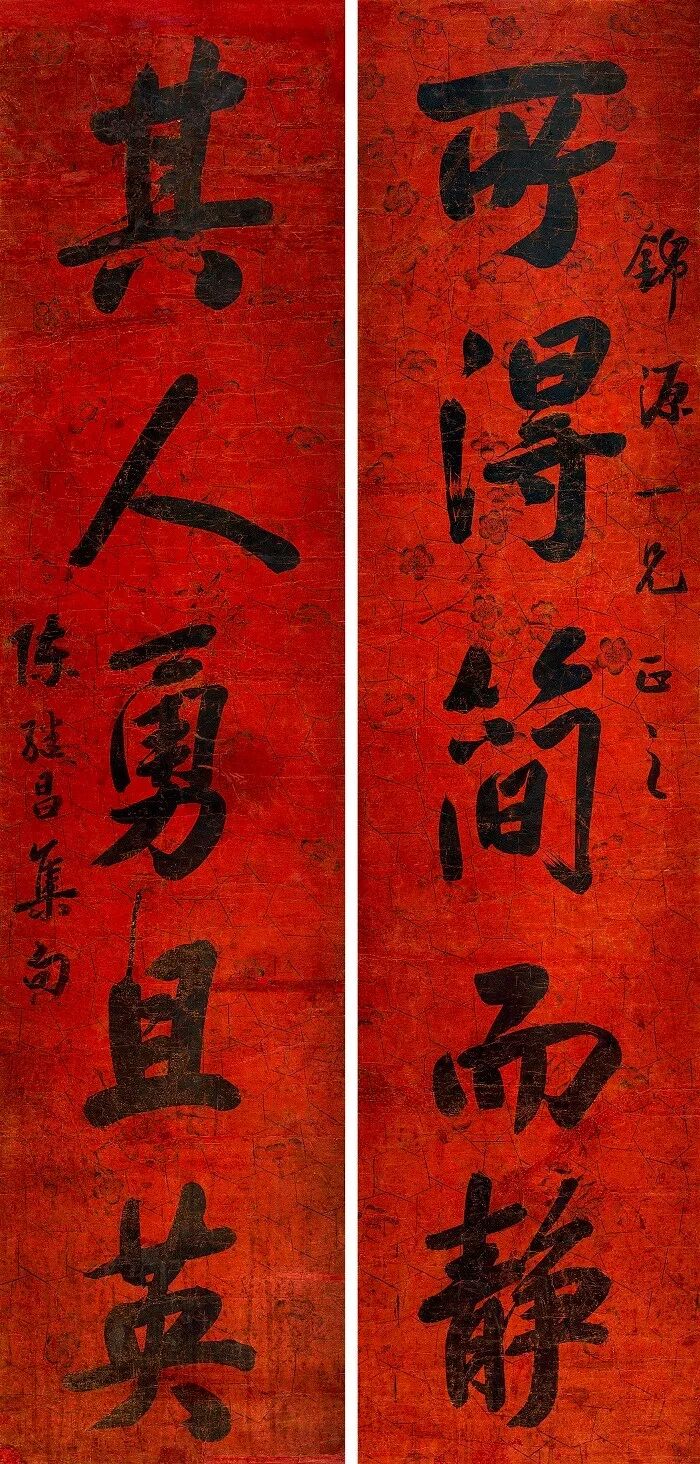 錦源一兄正之
所得簡而静
其人勇且英
陳繼昌集句